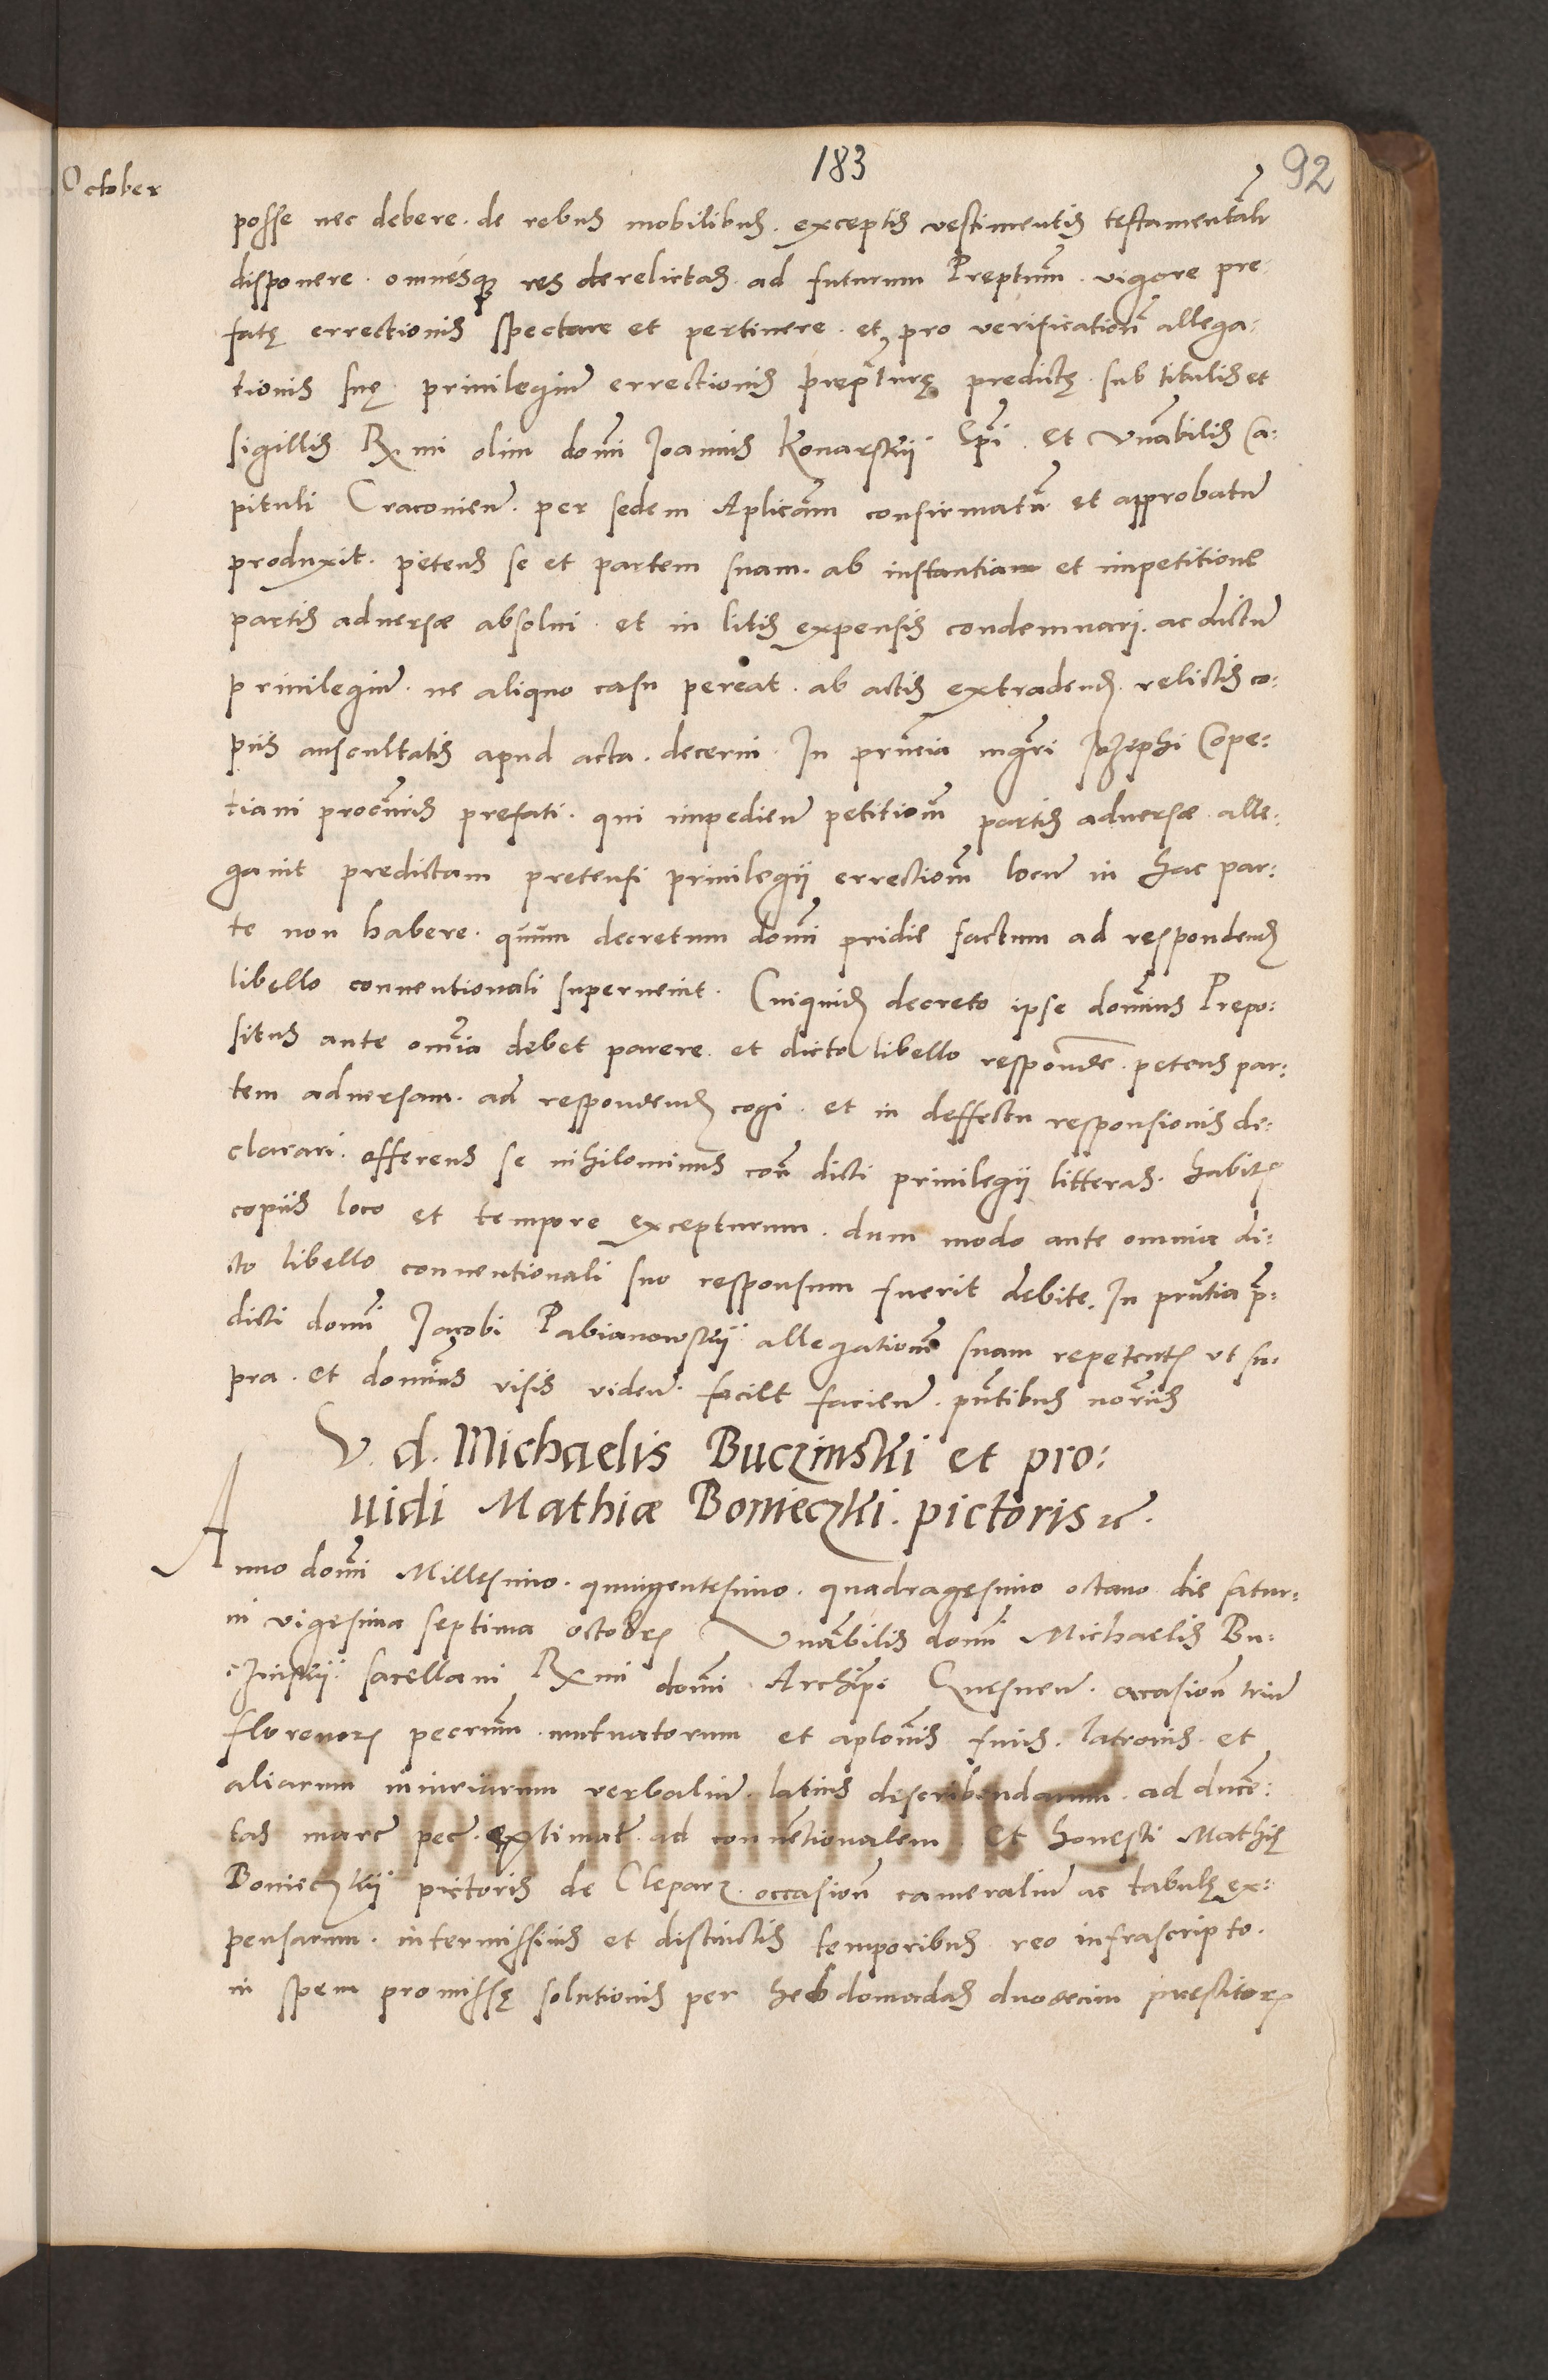 183
92
October
posse nec debere. de rebus mobilibus. exceptis vestimentis testamentali
disponere. omnesq; res derelictas ad futurum Preptum. vigore pre-
fatę errectionis spectare et pertinere. et pro verification̄ allega-
tionis suę. priuilegium errectionis prep̄turę predictę. sub titulis et
sigillis Rx mi olim domi Joannis Konarskii Epi. et Vnabilis Ca-
pituli Cracouien. per sedem Aplicam confirmatu et approbatu
produxit. petens se et partem suam. ab instantiam et impetitione
partis aduersæ absolui. et in litis expensis condemnari. ac dictu
priuilegiu. ne aliquo casu pereat. ab actis extradend. relictis co-
piis auscultatis apud acta. decerni. In pruncia mgri Jozephi Cope-
tiani procuris prefati. qui impedien petitiom partis aduersæ. alle-
gauit predictam pretensi priuilegii errectiom locu in hac par-
te non habere. quum decretum domi pridie factum ad respondend
libello conuentionali superuenit. Cuiquid decreto ipse domius Prepo-
situs ante omia debet parere. et dicto libello respondē. petens par-
tem aduersam. ad respondend cogi. et in deffectu responsionis de-
clarari. offerens se nihilominus con dicti priuilegii litteras. habitis
copiis loco et tempore excepturum. dum modo ante omnia di-
cto libello conuentionali suo responsum fuerit debite. In pruntia p̄-
dicti domi Jacobi Pabianowskii allegationem suam repetentis vt su-
pra. et domius visis viden. facilt facien. pntibus noriis
V. d. Michaelis Buczinski et pro-
uidi Mathiæ Bonieczki. pictoris etc.
Anno domi Millesimo. quingentesimo. quadragesimo octauo die satur-
ni vigesima septima octobris Vnabilis domi Michaelis Bu-
czinskii sacellani Rx mi domi Archiepi Gnesnen. occasion triu
florenorum pecrum. mutuatorum et aplonis furis. latronis. et
aliarum iniuriarum verbaliu. latius describendarum. ad ducē-
tas marc pec. extimat. ad conuentionalem. et honesti Mathię
Bonieczkii pictoris de Clepar. occasion cameraliu ac tabulę ex-
pensarum. intermissiuis et distinctis temporibus reo infrascripto.
in spem promissę solutionis per hebdomadas duodecim prestitoris